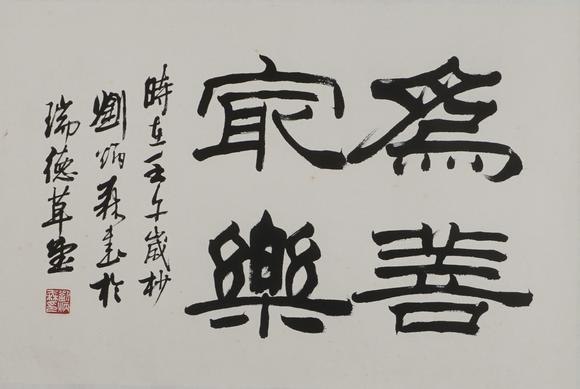 為善
㝡樂
時在壬午歲杪
劉炳森書於
瑞德草堂